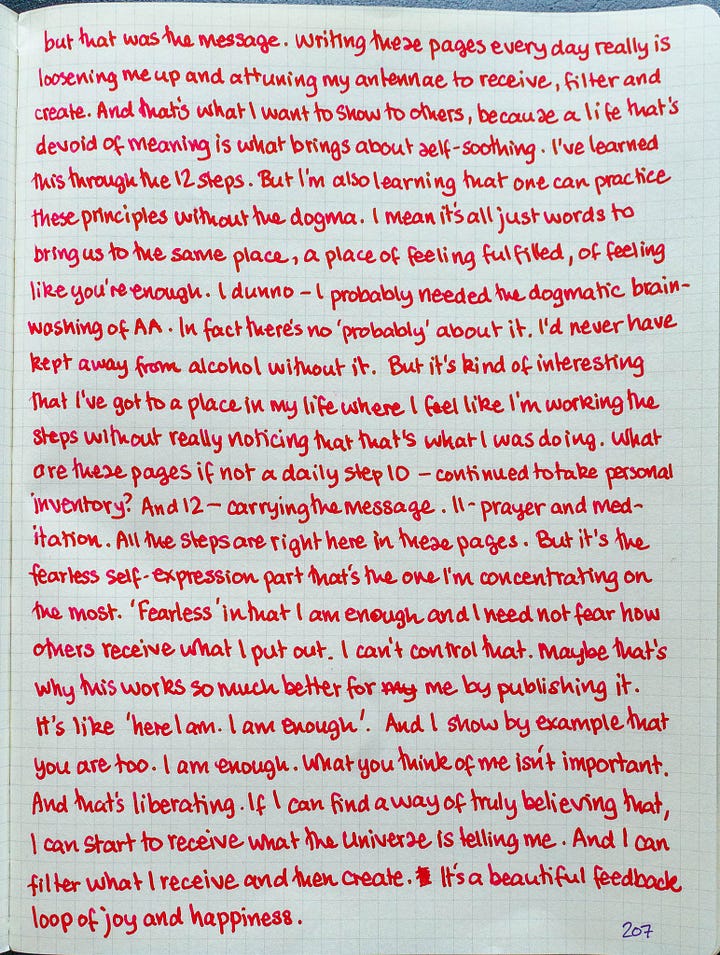 but that was the message. Writing these pages every day really is
loosening me up and attuning my antennae to receive, filter and
create. And that's what I want to show to others, because a life that's
devoid of meaning is what brings about self-soothing. I've learned
this through the 12 steps. But I'm also learning that one can practice
these principles without the dogma. I mean it's all just words to
bring us to the same place, a place of feeling fulfilled, of feeling
like you're enough. I dunno – I probably needed the dogmatic brain-
washing of AA. In fact there's no 'probably' about it. I'd never have
kept away from alcohol without it. But it's kind of interesting
that I've got to a place in my life where I feel like I'm working the
steps without really noticing that that's what I was doing. What
are these pages if not a daily step 10 – continued to take personal
inventory? And 12 – carrying the message. 11 - prayer and med-
itation. All the steps are right here in these pages. But it's the
fearless self-expression part that's the one I'm concentrating on
the most. 'Fearless' in that I am enough and I need not fear how
others receive what I put out. I can't control that. Maybe that's
why this works so much better for my me by publishing it.
It's like 'here I am. I am enough'. And I show by example that
you are too. I am enough. What you think of me isn't important.
And that's liberating. If I can find a way of truly believing that,
I can start to receive what the Universe is telling me. And I can
filter what I receive and then create. It's a beautiful feedback
loop of joy and happiness.
207